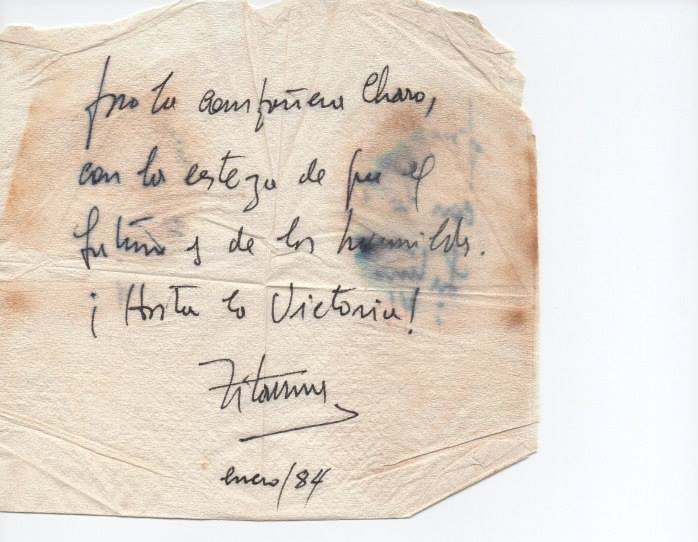 para la compañera Charo,
con la certeza de que el
futuro es de los humildes.
¡Hasta la Victoria!
enero/84